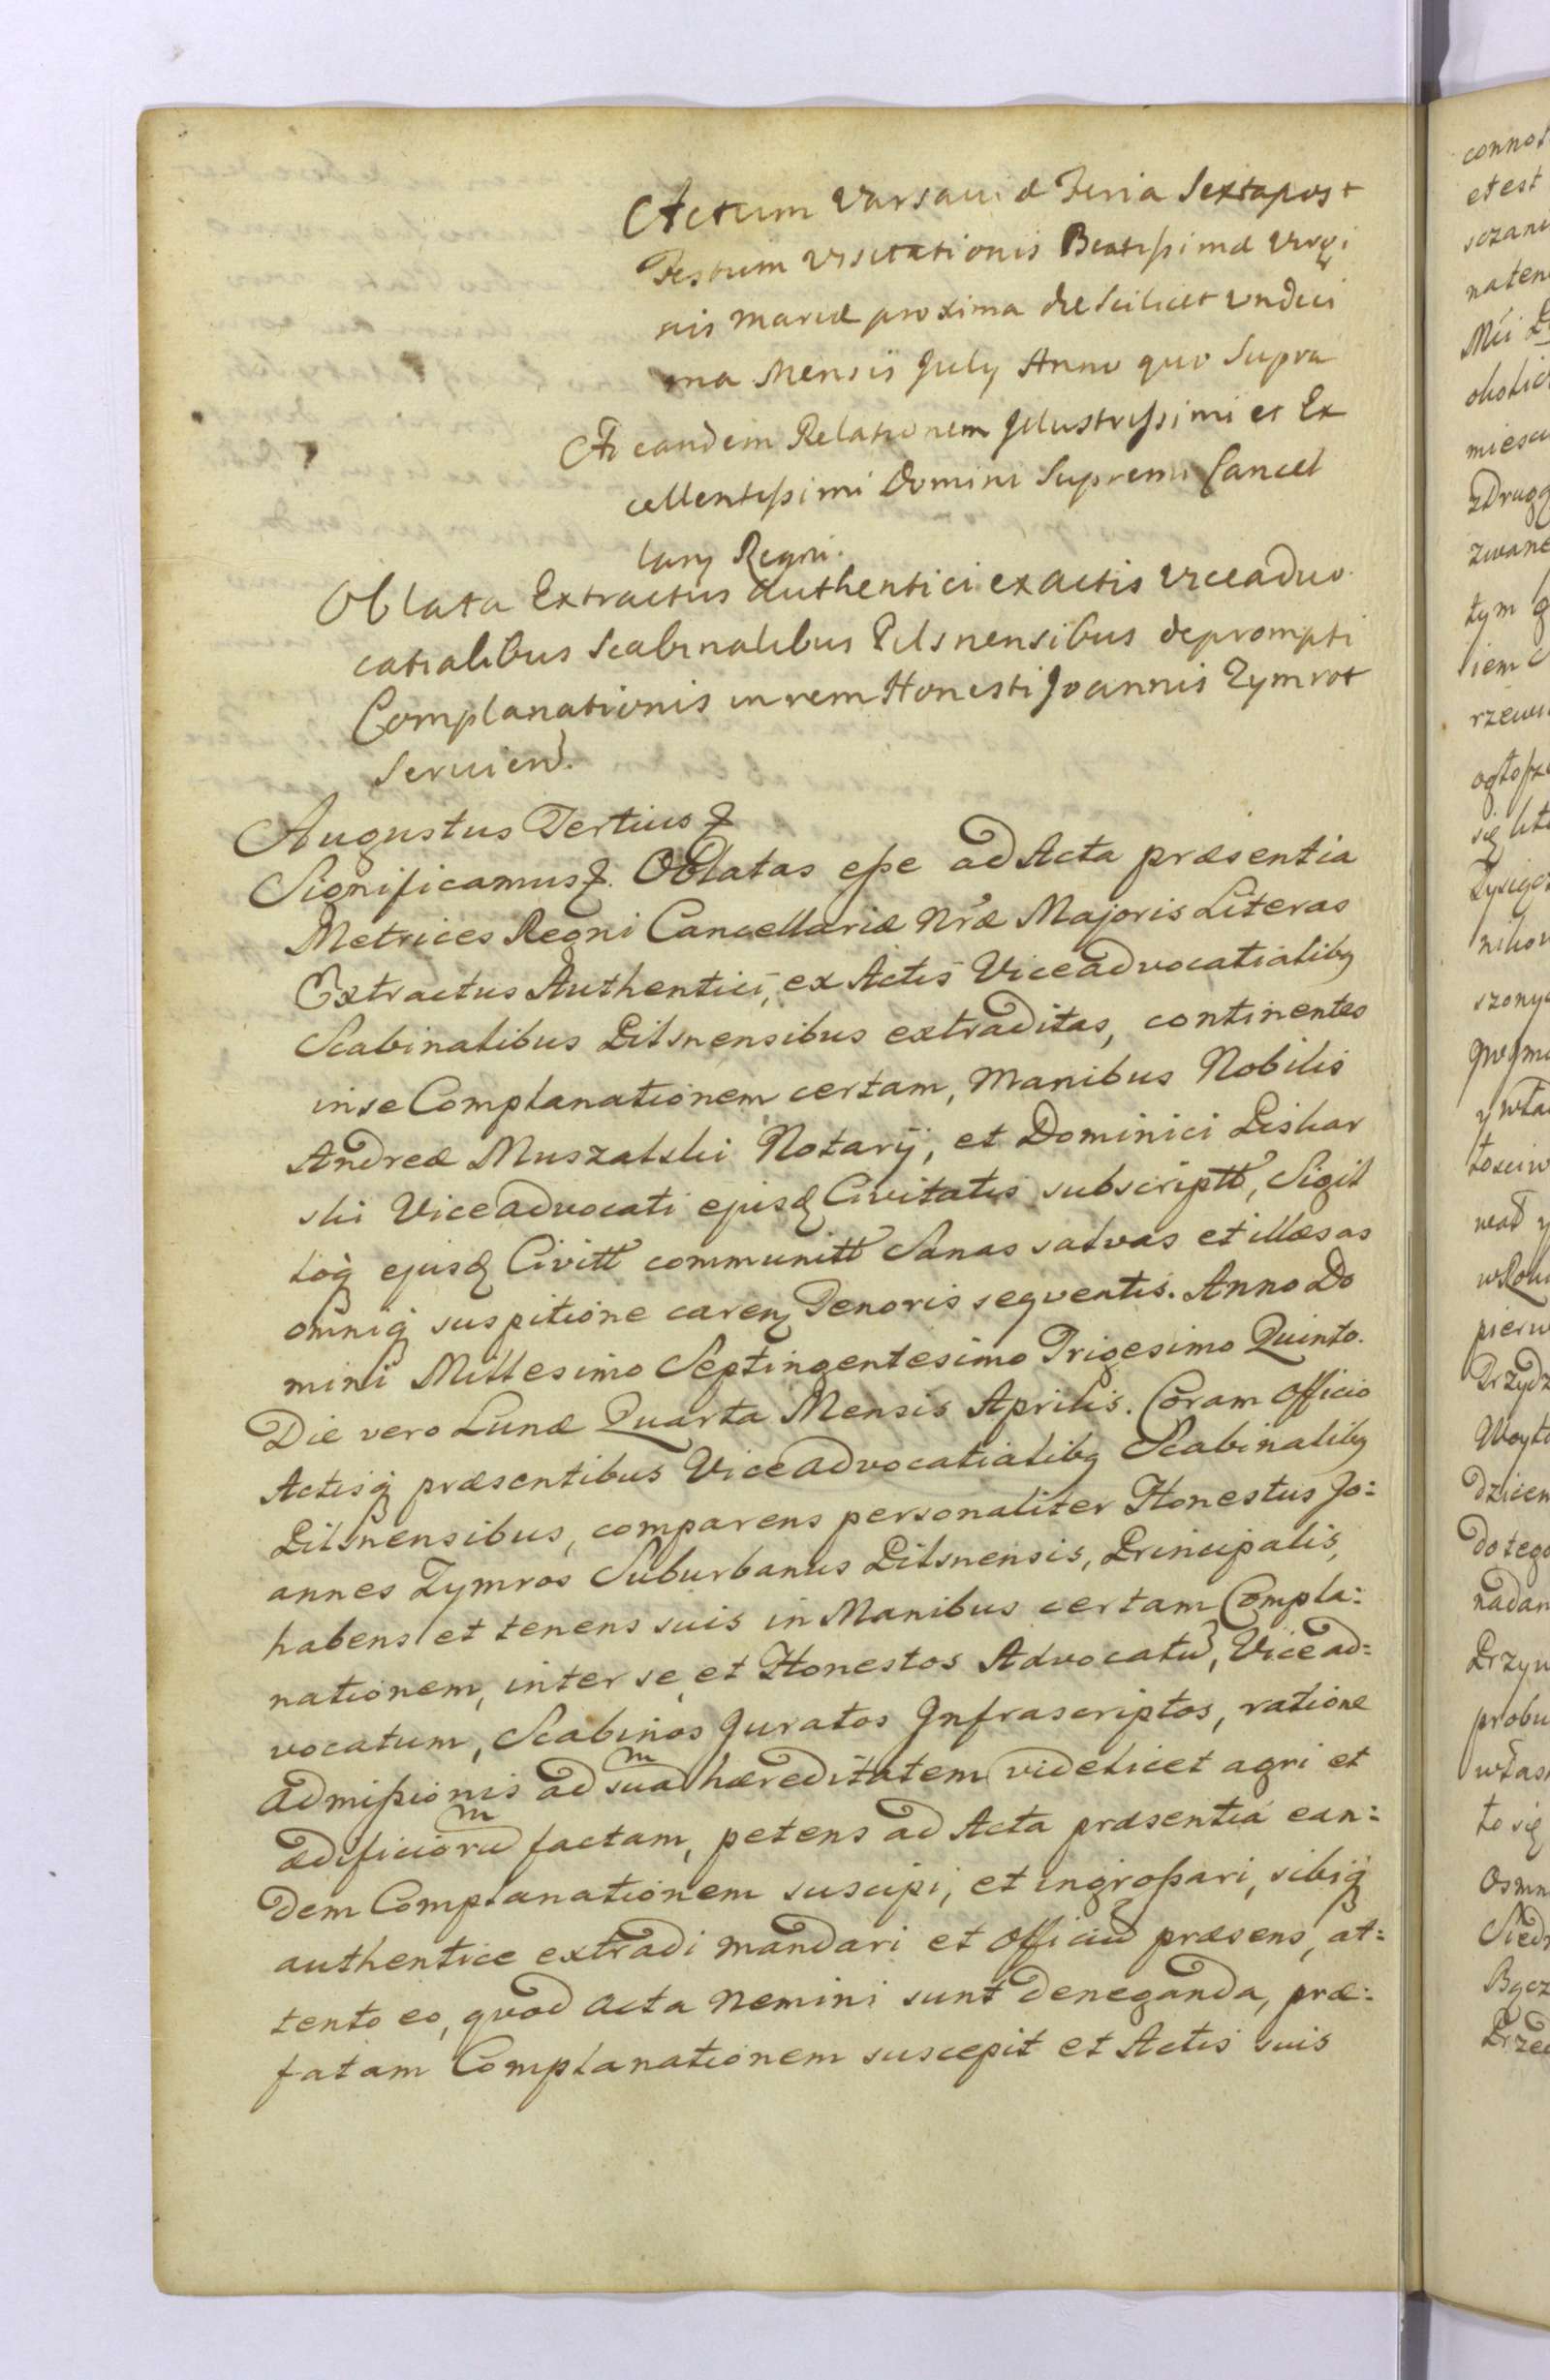 Actum Varsaviæ Feria Sexta post
Festum Visitationis Beatissimæ Virgi
nis Mariæ proxima die scilicet undeci
ma Mensis July Anno quo Supra
Ad eandem Relationem Jllustrissimi et Ex
cellentissimi Domini Supremi Cancel
lary Regni.
Oblata Extractus Authentici ex actis Viceadvo
catialibus Scabinalibus Pilsnensibus deprompti
Complanationis in rem Honesti Joannis Zymrot
Serviend.
Augustus Tertius
Significamus Oblatas esse ad Acta præsentia
Metrices Regni Cancellariæ Nræ Majoris Literas
Extractus Authentici, ex Actis Viceadvocatialibq
Scabinalibus Pilsnensibus extraditas, continentes
in se Complanationem certam, Manibus Nobilis
Andreæ Muszalski Notarij, et Dominici Piskar
ski Viceadvocati ejusd Civitatis subscriptt, Sigil
loq ejusd Civitt communitt Sanas salvas et illæsas
omniq suspitione caren Tenoris seqventis. Anno Do
mini Millesimo Septingentesimo Trigesimo Quinto.
Die vero Lunæ Quarta Mensis Aprilis. Coram Officio
Actisq præsentibus Viceadvocatialibq Scabinalibq
Pilsnensibus, comparens personaliter Honestus Jo:
annes Zymros Suburbanus Pilsnensis, Principalis,
habens et tenens suis in Manibus certam Compla:
nationem, inter se, et Honestos Advocatū, Vicead:
vocatum, Scabinos Juratos Jnfrascriptos, ratione
admissionis ad suam hæreditatem videlicet agri et
ædificiorum factam, petens ad Acta præsentia ean:
dem Complanationem suscipi, et ingrossari, sibiq
authentice extradi mandari et Officiū præsens, at:
tento eo, qvod Acta Nemini sunt deneganda, præ:
fatam Complanationem suscepit et Actis suis